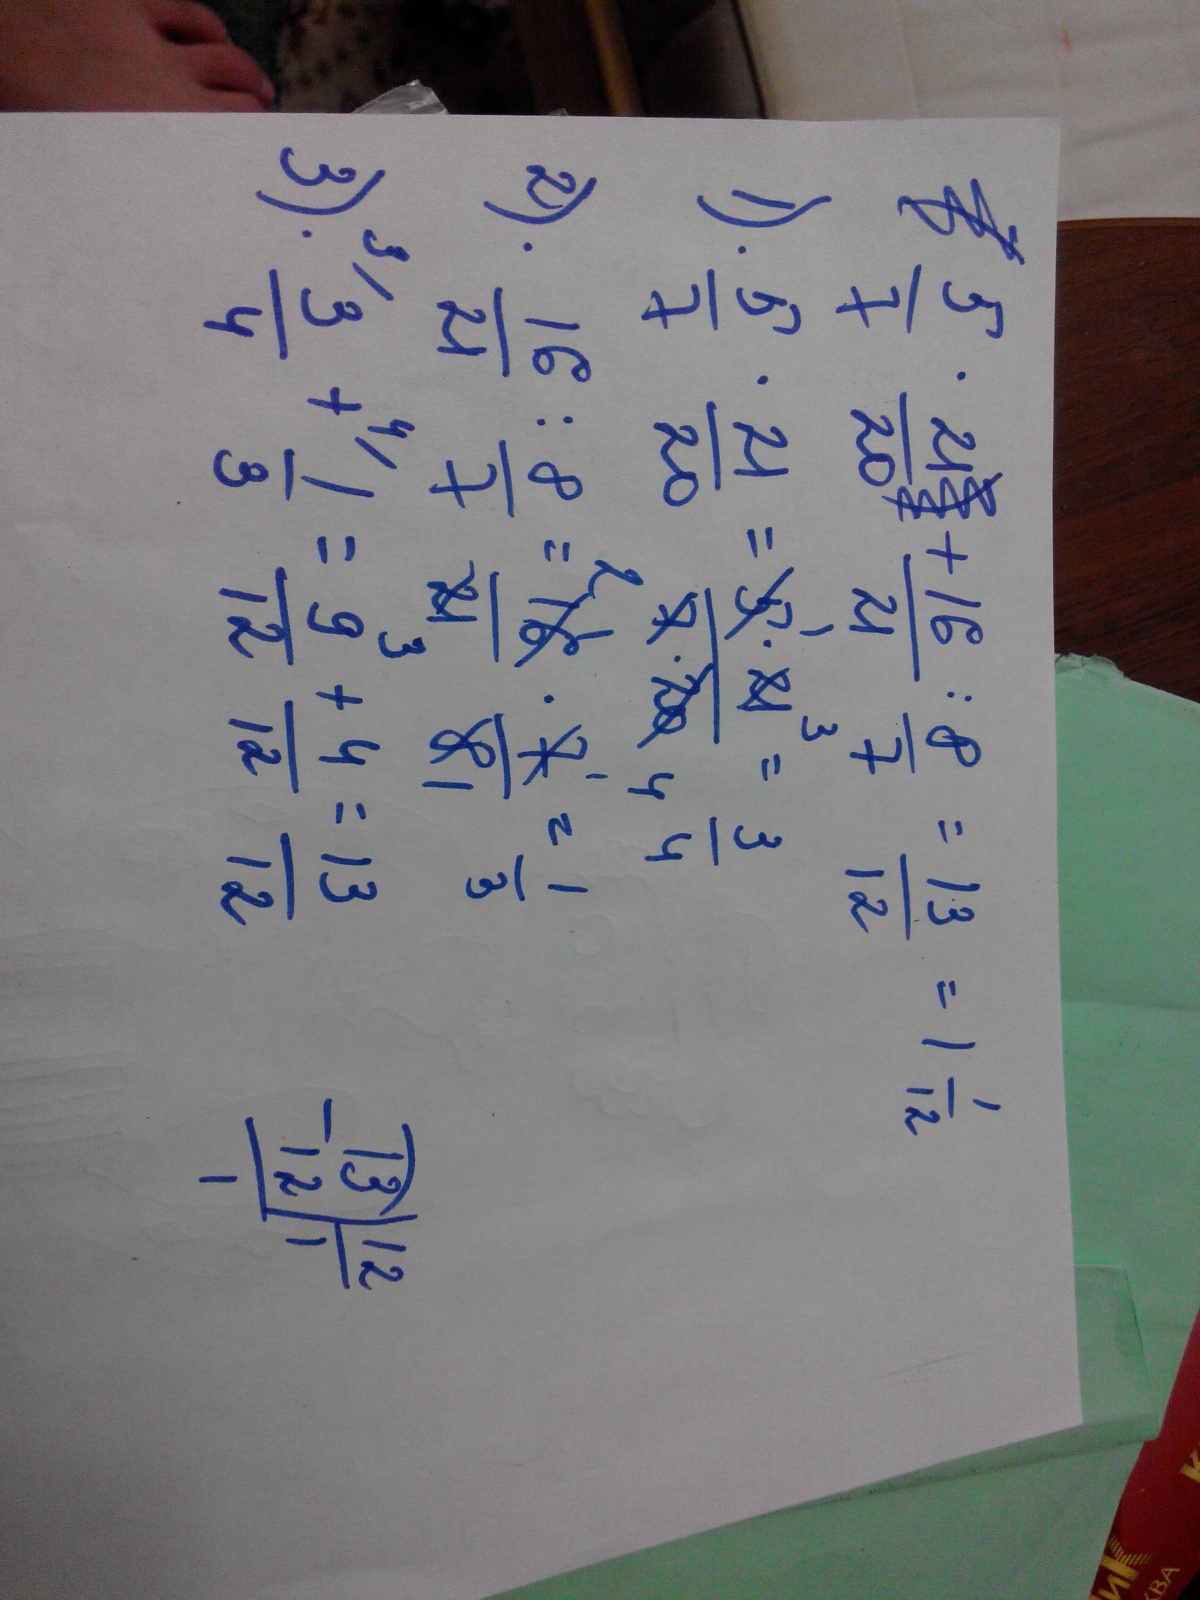 5/7 · 21/20 + 16/21 : 8/7 = 13/12 = 1 1/12
1). 5/7 · 21/20 = 5 · 21/7 · 20 = 3/4
1 3
4
2). 16/21 : 8/7 = 16/21 · 7/8 = 1/3
2 1 1
3 1
3). 3/4 + 1/3 = 9/12 + 4/12 = 13/12
3/ 4/
13 | 12
- 12 | 1
1